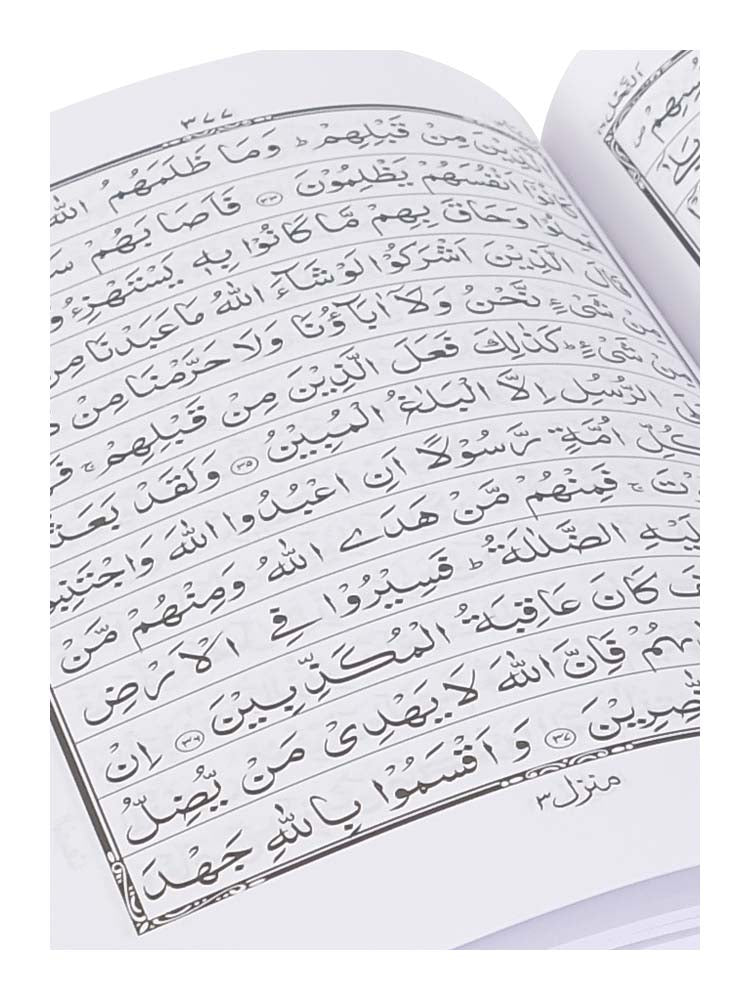 ٣٧٧
الَّذِيْنَ مِنْ قَبْلِهِمْ ؕ وَمَا ظَلَمَهُمُ اللهُ
كَانُوْۤا اَنْفُسَهُمْ يَظْلِمُوْنَ ﴿٣٣﴾ فَاَصَابَهُمْ
وَحَاقَ بِهِمْ مَّا كَانُوْا بِهٖ يَسْتَهْزِءُوْنَ
قَالَ الَّذِيْنَ اَشْرَكُوْا لَوْ شَآءَ اللهُ مَا عَبَدْنَا مِنْ
مِنْ شَيْءٍ نَّحْنُ وَلَاۤ اٰبَآؤُنَا وَلَا حَرَّمْنَا مِنْ
مِنْ شَيْءٍ ؕ كَذٰلِكَ فَعَلَ الَّذِيْنَ مِنْ قَبْلِهِمْ ۚ
الرُّسُلِ اِلَّا الْبَلٰغُ الْمُبِيْنُ ﴿٣٥﴾ وَلَقَدْ بَعَثْنَا
كُلِّ اُمَّةٍ رَّسُوْلًا اَنِ اعْبُدُوا اللهَ وَاجْتَنِبُوا
فَمِنْهُمْ مَّنْ هَدَى اللهُ وَمِنْهُمْ مَّنْ
عَلَيْهِ الضَّلٰلَةُ ؕ فَسِيْرُوْا فِي الْاَرْضِ
كَانَ عَاقِبَةُ الْمُكَذِّبِيْنَ ﴿٣٦﴾ اِنْ
فَاِنَّ اللهَ لَا يَهْدِيْ مَنْ يُّضِلُّ
نّٰصِرِيْنَ ﴿٣٧﴾ وَاَقْسَمُوْا بِاللهِ جَهْدَ
منزل ٣
النحل